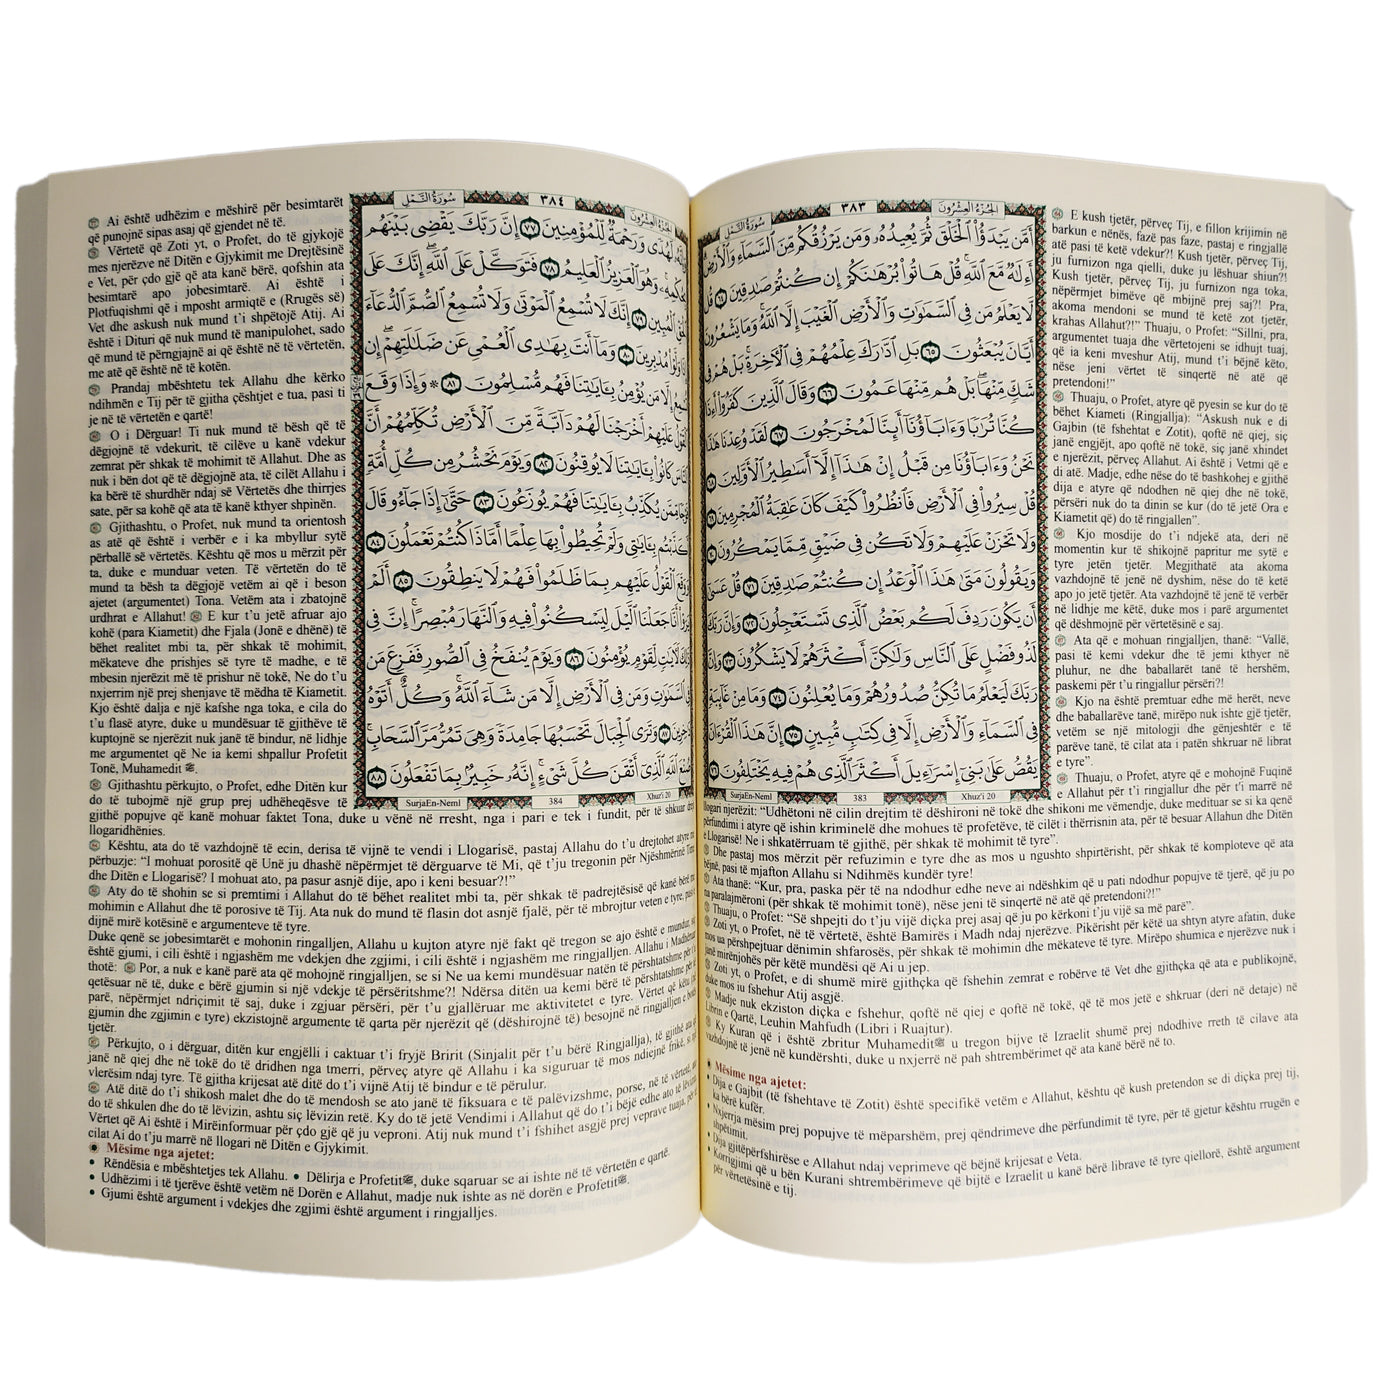 سُورَةُ النَّمْلِ ٣٨٣ الجُزْءُ العِشْرُونَ
أَمَّن يَبْدَؤُا۟ ٱلْخَلْقَ ثُمَّ يُعِيدُهُۥ وَمَن يَرْزُقُكُم مِّنَ ٱلسَّمَآءِ وَٱلْأَرْضِ
أَءِلَٰهٌ مَّعَ ٱللَّهِ قُلْ هَاتُوا۟ بُرْهَٰنَكُمْ إِن كُنتُمْ صَٰدِقِينَ ٦٤ قُل
لَّا يَعْلَمُ مَن فِى ٱلسَّمَٰوَٰتِ وَٱلْأَرْضِ ٱلْغَيْبَ إِلَّا ٱللَّهُ وَمَا يَشْعُرُونَ
أَيَّانَ يُبْعَثُونَ ٦٥ بَلِ ٱدَّٰرَكَ عِلْمُهُمْ فِى ٱلْءَاخِرَةِ بَلْ هُمْ فِى
شَكٍّ مِّنْهَا بَلْ هُم مِّنْهَا عَمُونَ ٦٦ وَقَالَ ٱلَّذِينَ كَفَرُوٓا۟ أَءِذَا
كُنَّا تُرَٰبًا وَءَابَآؤُنَآ أَئِنَّا لَمُخْرَجُونَ ٦٧ لَقَدْ وُعِدْنَا هَٰذَا
نَحْنُ وَءَابَآؤُنَا مِن قَبْلُ إِنْ هَٰذَآ إِلَّآ أَسَٰطِيرُ ٱلْأَوَّلِينَ ٦٨
قُلْ سِيرُوا۟ فِى ٱلْأَرْضِ فَٱنظُرُوا۟ كَيْفَ كَانَ عَٰقِبَةُ ٱلْمُجْرِمِينَ ٦٩
وَلَا تَحْزَنْ عَلَيْهِمْ وَلَا تَكُن فِى ضَيْقٍ مِّمَّا يَمْكُرُونَ ٧٠
وَيَقُولُونَ مَتَىٰ هَٰذَا ٱلْوَعْدُ إِن كُنتُمْ صَٰدِقِينَ ٧١ قُلْ عَسَىٰٓ
أَن يَكُونَ رَدِفَ لَكُم بَعْضُ ٱلَّذِى تَسْتَعْجِلُونَ ٧٢ وَإِنَّ رَبَّكَ
لَذُو فَضْلٍ عَلَى ٱلنَّاسِ وَلَٰكِنَّ أَكْثَرَهُمْ لَا يَشْكُرُونَ ٧٣ وَإِنَّ
رَبَّكَ لَيَعْلَمُ مَا تُكِنُّ صُدُورُهُمْ وَمَا يُعْلِنُونَ ٧٤ وَمَا مِنْ غَآئِبَةٍ
فِى ٱلسَّمَآءِ وَٱلْأَرْضِ إِلَّا فِى كِتَٰبٍ مُّبِينٍ ٧٥ إِنَّ هَٰذَا ٱلْقُرْءَانَ
يَقُصُّ عَلَىٰ بَنِىٓ إِسْرَٰٓءِيلَ أَكْثَرَ ٱلَّذِى هُمْ فِيهِ يَخْتَلِفُونَ ٧٦
SurjaEn-Neml 383 Xhuz'i 20
E kush tjetër, përveç Tij, e fillon krijimin në
barkun e nënës, fazë pas faze, pastaj e ringjallë
atë pasi të ketë vdekur?! Kush tjetër, përveç Tij,
ju furnizon nga qielli, duke ju lëshuar shiun?!
Kush tjetër, përveç Tij, ju furnizon nga toka,
nëpërmjet bimëve që mbijnë prej saj?! Pra,
akoma mendoni se mund të ketë zot tjetër,
krahas Allahut?!” Thuaju, o Profet: “Sillni, pra,
argumentet tuaja dhe vërtetojeni se idhujt tuaj,
që ia keni mveshur Atij, mund t’i bëjnë këto,
nëse jeni vërtet të sinqertë në atë që
pretendoni!”
Thuaju, o Profet, atyre që pyesin se kur do të
bëhet Kiameti (Ringjallja): “Askush nuk e di
Gajbin (të fshehtat e Zotit), qoftë në qiej, siç
janë engjëjt, apo qoftë në tokë, siç janë xhindet
e njerëzit, përveç Allahut. Ai është i Vetmi që e
di atë. Madje, edhe nëse do të bashkohej e gjithë
dija e atyre që ndodhen në qiej dhe në tokë,
përsëri nuk do ta dinin se kur (do të jetë Ora e
Kiametit që) do të ringjallen”.
Kjo mosdije do t’i ndjekë ata, deri në
momentin kur të shikojnë papritur me sytë e
tyre jetën tjetër. Megjithatë ata akoma
vazhdojnë të jenë në dyshim, nëse do të ketë
apo jo jetë tjetër. Ata vazhdojnë të jenë të verbër
në lidhje me këtë, duke mos i parë argumentet
që dëshmojnë për vërtetësinë e saj.
Ata që e mohuan ringjalljen, thanë: “Vallë,
pasi të kemi vdekur dhe të jemi kthyer në
pluhur, ne dhe baballarët tanë të hershëm,
paskemi për t’u ringjallur përsëri?!
Kjo na është premtuar edhe më herët, neve
dhe baballarëve tanë, mirëpo nuk ishte gjë tjetër,
vetëm se një mitologji dhe gënjeshtër e të
parëve tanë, të cilat ata i patën shkruar në librat
e tyre”.
Thuaju, o Profet, atyre që e mohojnë Fuqinë
e Allahut për t’i ringjallur dhe për t’i marrë në
llogari njerëzit: “Udhëtoni në cilin drejtim të dëshironi në tokë dhe shikoni me vëmendje, duke medituar se si ka qenë
përfundimi i atyre që ishin kriminelë dhe mohues të profetëve, të cilët i thërrisnin ata, për të besuar Allahun dhe Ditën
e Llogarisë! Ne i shkatërruam të gjithë, për shkak të mohimit të tyre”.
Dhe pastaj mos mërzit për refuzimin e tyre dhe as mos u ngushto shpirtërisht, për shkak të komploteve që ata
bëjnë, pasi të mjafton Allahu si Ndihmës kundër tyre!
Ata thanë: “Kur, pra, paska për të na ndodhur edhe neve ai ndëshkim që u pati ndodhur popujve të tjerë, që ju po
na paralajmëroni (për shkak të mohimit tonë), nëse jeni të sinqertë në atë që pretendoni?!”
Thuaju, o Profet: “Së shpejti do t’ju vijë diçka prej asaj që ju po kërkoni t’ju vijë sa më parë”.
Zoti yt, o Profet, në të vërtetë, është Bamirës i Madh ndaj njerëzve. Pikërisht për këtë ua shtyn atyre afatin, duke
mos ua përshpejtuar dënimin shfarosës, për shkak të mohimin dhe mëkateve të tyre. Mirëpo shumica e njerëzve nuk i
janë mirënjohës për këtë mundësi që Ai u jep.
Zoti yt, o Profet, e di shumë mirë gjithçka që fshehin zemrat e robërve të Vet dhe gjithçka që ata e publikojnë,
duke mos iu fshehur Atij asgjë.
Madje nuk ekziston diçka e fshehur, qoftë në qiej e qoftë në tokë, që të mos jetë e shkruar (deri në detaje) në
Librin e Qartë, Leuhin Mahfudh (Libri i Ruajtur).
Ky Kuran që i është zbritur Muhamedit ﷺ u tregon bijve të Izraelit shumë prej ndodhive rreth të cilave ata
vazhdojnë të jenë në kundërshti, duke u nxjerrë në pah shtrembërimet që ata kanë bërë në to.
Mësime nga ajetet:
• Dija e Gajbit (të fshehtave të Zotit) është specifikë vetëm e Allahut, kështu që kush pretendon se di diçka prej tij,
ka bërë kufër.
• Nxjerrja mësim prej popujve të mëparshëm, prej qëndrimeve dhe përfundimit të tyre, për të gjetur kështu rrugën e
shpëtimit.
• Dija gjithëpërfshirëse e Allahut ndaj veprimeve që bëjnë krijesat e Veta.
• Korrigjimi që u bën Kurani shtrembërimeve që bijtë e Izraelit u kanë bërë librave të tyre qiellorë, është argument
për vërtetësinë e tij.
سُورَةُ النَّمْلِ ٣٨٤ الجُزْءُ العِشْرُونَ
لَهُدًى وَرَحْمَةٌ لِّلْمُؤْمِنِينَ ٧٧ إِنَّ رَبَّكَ يَقْضِى بَيْنَهُم
بِحُكْمِهِۦ وَهُوَ ٱلْعَزِيزُ ٱلْعَلِيمُ ٧٨ فَتَوَكَّلْ عَلَى ٱللَّهِ إِنَّكَ عَلَى
ٱلْحَقِّ ٱلْمُبِينِ ٧٩ إِنَّكَ لَا تُسْمِعُ ٱلْمَوْتَىٰ وَلَا تُسْمِعُ ٱلصُّمَّ ٱلدُّعَآءَ
إِذَا وَلَّوْا۟ مُدْبِرِينَ ٨٠ وَمَآ أَنتَ بِهَٰدِى ٱلْعُمْىِ عَن ضَلَٰلَتِهِمْ إِن
تُسْمِعُ إِلَّا مَن يُؤْمِنُ بِـَٔايَٰتِنَا فَهُم مُّسْلِمُونَ ٨١ ۞ وَإِذَا وَقَعَ
ٱلْقَوْلُ عَلَيْهِمْ أَخْرَجْنَا لَهُمْ دَآبَّةً مِّنَ ٱلْأَرْضِ تُكَلِّمُهُمْ أَنَّ
ٱلنَّاسَ كَانُوا۟ بِـَٔايَٰتِنَا لَا يُوقِنُونَ ٨٢ وَيَوْمَ نَحْشُرُ مِن كُلِّ أُمَّةٍ
فَوْجًا مِّمَّن يُكَذِّبُ بِـَٔايَٰتِنَا فَهُمْ يُوزَعُونَ ٨٣ حَتَّىٰٓ إِذَا جَآءُو قَالَ
أَكَذَّبْتُم بِـَٔايَٰتِى وَلَمْ تُحِيطُوا۟ بِهَا عِلْمًا أَمَّاذَا كُنتُمْ تَعْمَلُونَ ٨٤
وَوَقَعَ ٱلْقَوْلُ عَلَيْهِم بِمَا ظَلَمُوا۟ فَهُمْ لَا يَنطِقُونَ ٨٥ أَلَمْ
يَرَوْا۟ أَنَّا جَعَلْنَا ٱلَّيْلَ لِيَسْكُنُوا۟ فِيهِ وَٱلنَّهَارَ مُبْصِرًا إِنَّ فِى
ذَٰلِكَ لَءَايَٰتٍ لِّقَوْمٍ يُؤْمِنُونَ ٨٦ وَيَوْمَ يُنفَخُ فِى ٱلصُّورِ فَفَزِعَ مَن
فِى ٱلسَّمَٰوَٰتِ وَمَن فِى ٱلْأَرْضِ إِلَّا مَن شَآءَ ٱللَّهُ وَكُلٌّ أَتَوْهُ
دَٰخِرِينَ ٨٧ وَتَرَى ٱلْجِبَالَ تَحْسَبُهَا جَامِدَةً وَهِىَ تَمُرُّ مَرَّ ٱلسَّحَابِ
صُنْعَ ٱللَّهِ ٱلَّذِىٓ أَتْقَنَ كُلَّ شَىْءٍ إِنَّهُۥ خَبِيرٌۢ بِمَا تَفْعَلُونَ ٨٨
SurjaEn-Neml 384 Xhuz'i 20
Ai është udhëzim e mëshirë për besimtarët
që punojnë sipas asaj që gjendet në të.
Vërtetë që Zoti yt, o Profet, do të gjykojë
mes njerëzve në Ditën e Gjykimit me Drejtësinë
e Vet, për çdo gjë që ata kanë bërë, qofshin ata
besimtarë apo jobesimtarë. Ai është i
Plotfuqishmi që i mposht armiqtë e (Rrugës së)
Vet dhe askush nuk mund t’i shpëtojë Atij. Ai
është i Dituri që nuk mund të manipulohet, sado
që mund të përngjajnë ai që është në të vërtetën,
me atë që është në të kotën.
Prandaj mbështetu tek Allahu dhe kërko
ndihmën e Tij për të gjitha çështjet e tua, pasi ti
je në të vërtetën e qartë!
O i Dërguar! Ti nuk mund të bësh që të
dëgjojnë të vdekurit, të cilëve u kanë vdekur
zemrat për shkak të mohimit të Allahut. Dhe as
nuk i bën dot që të dëgjojnë ata, të cilët Allahu i
ka bërë të shurdhër ndaj së Vërtetës dhe thirrjes
sate, për sa kohë që ata të kanë kthyer shpinën.
Gjithashtu, o Profet, nuk mund ta orientosh
as atë që është i verbër e i ka mbyllur sytë
përballë së vërtetës. Kështu që mos u mërzit për
ta, duke e munduar veten. Të vërtetën do të
mund ta bësh ta dëgjojë vetëm ai që i beson
ajetet (argumentet) Tona. Vetëm ata i zbatojnë
urdhrat e Allahut! E kur t’u jetë afruar ajo
kohë (para Kiametit) dhe Fjala (Jonë e dhënë) të
bëhet realitet mbi ta, për shkak të mohimit,
mëkateve dhe prishjes së tyre të madhe, e të
mbesin njerëzit më të prishur në tokë, Ne do t’u
nxjerrim një prej shenjave të mëdha të Kiametit.
Kjo është dalja e një kafshe nga toka, e cila do
t’u flasë atyre, duke u mundësuar të gjithëve të
kuptojnë se njerëzit nuk janë të bindur, në lidhje
me argumentet që Ne ia kemi shpallur Profetit
Tonë, Muhamedit ﷺ.
Gjithashtu përkujto, o Profet, edhe Ditën kur
do të tubojmë një grup prej udhëheqësve të
gjithë popujve që kanë mohuar faktet Tona, duke u vënë në rresht, nga i pari e tek i fundit, për të shkuar drejt
llogaridhënies.
Kështu, ata do të vazhdojnë të ecin, derisa të vijnë te vendi i Llogarisë, pastaj Allahu do t’u drejtohet atyre me
përbuzje: “I mohuat porositë që Unë ju dhashë nëpërmjet të dërguarve të Mi, që t’ju tregonin për Njëshmërinë Time
dhe Ditën e Llogarisë? I mohuat ato, pa pasur asnjë dije, apo i keni besuar?!”
Aty do të shohin se si premtimi i Allahut do të bëhet realitet mbi ta, për shkak të padrejtësisë që kanë bërë me
mohimin e Allahut dhe të porosive të Tij. Ata nuk do mund të flasin dot asnjë fjalë, për të mbrojtur veten e tyre, pasi
dijnë mirë kotësinë e argumenteve të tyre.
Duke qenë se jobesimtarët e mohonin ringalljen, Allahu u kujton atyre një fakt që tregon se ajo është e mundur, siç
është gjumi, i cili është i ngjashëm me vdekjen dhe zgjimi, i cili është i ngjashëm me ringjalljen. Allahu i Madhëruar
thotë: Por, a nuk e kanë parë ata që mohojnë ringjalljen, se si Ne ua kemi mundësuar natën të përshtatshme për t’u
qetësuar në të, duke e bërë gjumin si një vdekje të përsëritshme?! Ndërsa ditën ua kemi bërë të përshtatshme për të
parë, nëpërmjet ndriçimit të saj, duke i zgjuar përsëri, për t’u gjallëruar me aktivitetet e tyre. Vërtet që këtu (në
gjumin dhe zgjimin e tyre) ekzistojnë argumente të qarta për njerëzit që (dëshirojnë të) besojnë në ringjalljen e botës
tjetër.
Përkujto, o i dërguar, ditën kur engjëlli i caktuar t’i fryjë Bririt (Sinjalit për t’u bërë Ringjallja), të gjithë ata që
janë në qiej dhe në tokë do të dridhen nga tmerri, përveç atyre që Allahu i ka siguruar të mos ndiejnë frikë, si
vlerësim ndaj tyre. Të gjitha krijesat atë ditë do t’i vijnë Atij të bindur e të përulur.
Atë ditë do t’i shikosh malet dhe do të mendosh se ato janë të fiksuara e të palëvizshme, porse, në të vërtetë, ato
do të shkulen dhe do të lëvizin, ashtu siç lëvizin retë. Ky do të jetë Vendimi i Allahut që do t’i bëjë edhe ato të lëvizin.
Vërtet që Ai është i Mirëinformuar për çdo gjë që ju veproni. Atij nuk mund t’i fshihet asgjë prej veprave tuaja, për të
cilat Ai do t’ju marrë në llogari në Ditën e Gjykimit.
Mësime nga ajetet:
• Rëndësia e mbështetjes tek Allahu. • Dëlirja e Profetitﷺ, duke sqaruar se ai ishte në të vërtetën e qartë.
• Udhëzimi i të tjerëve është vetëm në Dorën e Allahut, madje nuk ishte as në dorën e Profetitﷺ.
• Gjumi është argument i vdekjes dhe zgjimi është argument i ringjalljes.